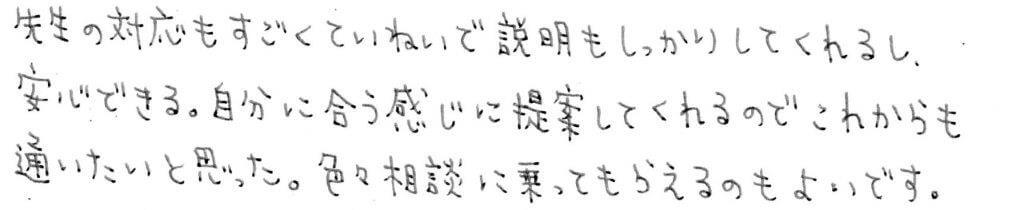 先生の対応もすごくていねいで説明もしっかりしてくれるし、
安心できる。自分に合う感じに提案してくれるのでこれからも
通いたいと思った。色々相談に乗ってもらえるのもよいです。